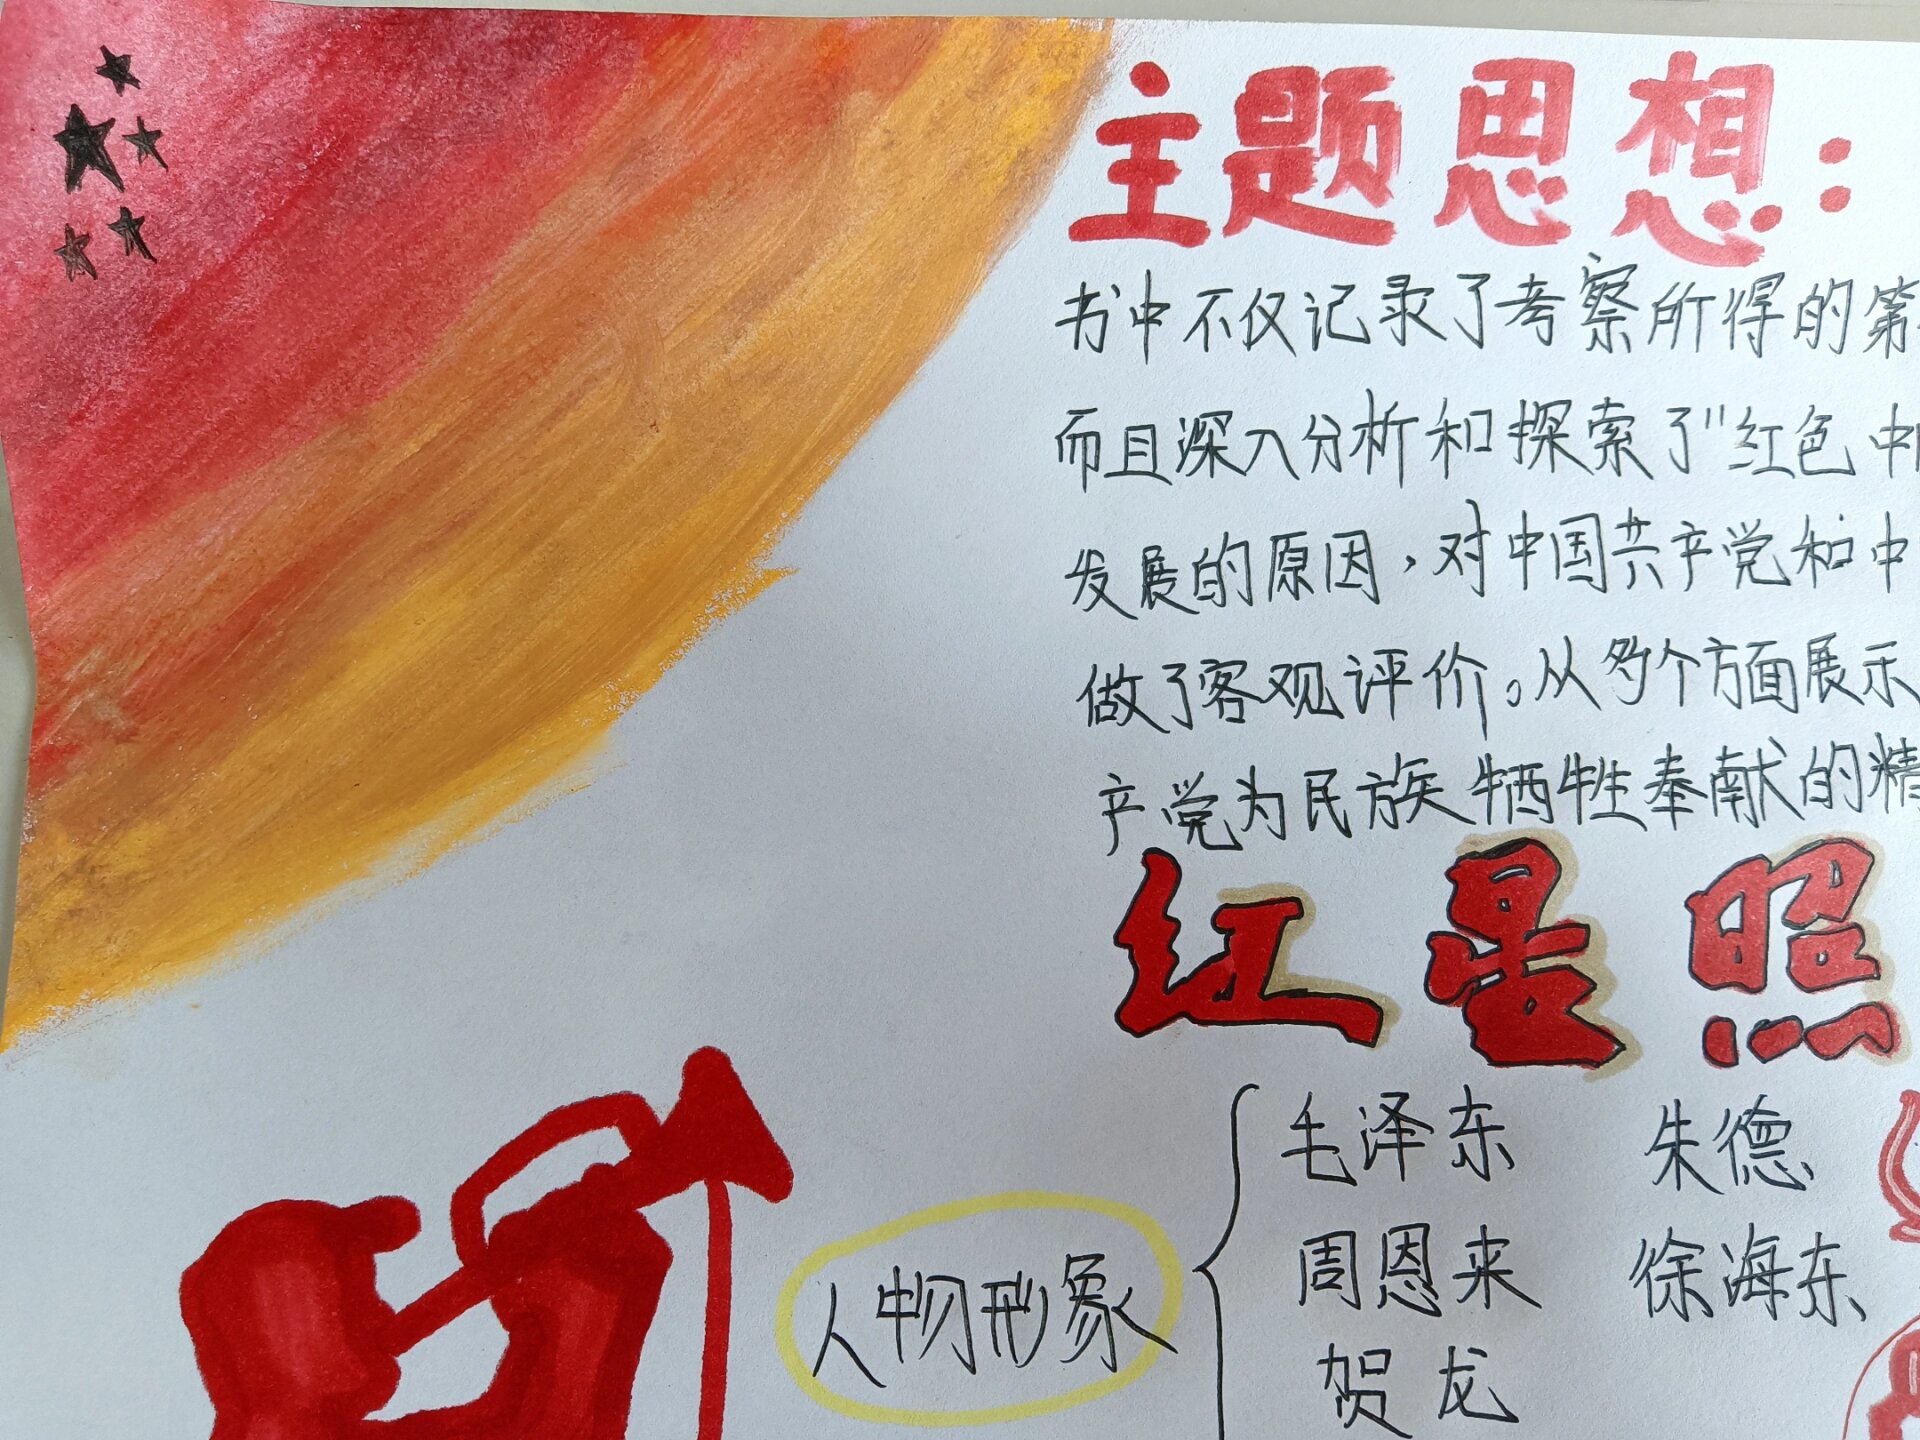 主题思想：
书中不仅记录了考察所得的第
而且深入分析和探索了"红色中
发展的原因，对中国共产党和中
做了客观评价。从多个方面展示
产党为民族牺牲奉献的精
红星照
人物形象
毛泽东 朱德
周恩来 徐海东
贺龙